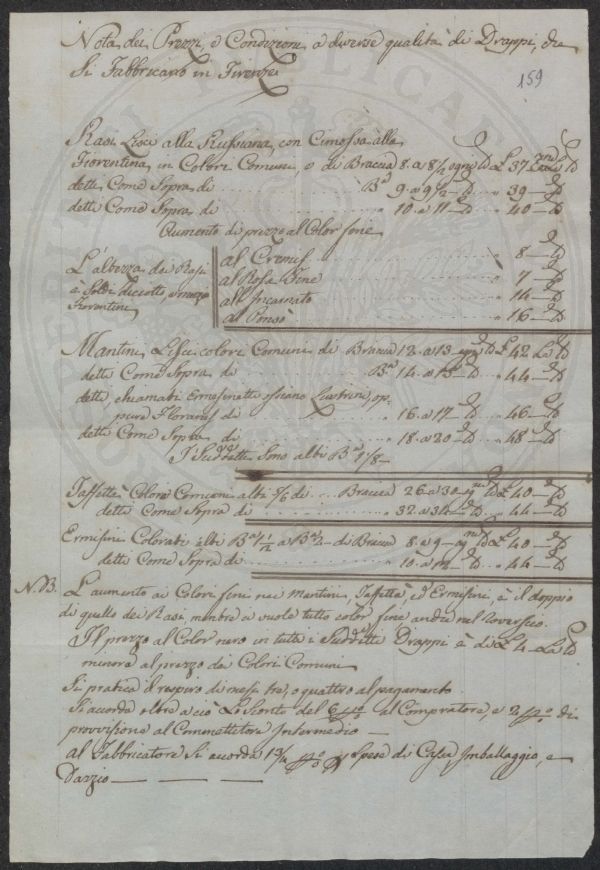 Nota dei Prezzi, e Condizioni a diverse qualità di Drappi, che
Si Fabbricano in Firenze
159
Rasi Lisci alla Prussiana, con Cimossa alla
Fiorentina, in Colori Comuni, e di Braccia 8. a 8½ ogni £ 37
detti Come Sopra di Ba 9. a 9½ 39
detti Come Sopra di 10. a 11 40
Aumento di prezzo al Color fine
L'altezza dei Rasi
è Soldi diciotto, e mezzo
Fiorentini
al Cremis 8
al Rosa Fine 7
al Incarnato 14
al Ponsò 16
Mantini Lisci colori Comuni di Braccia 12. a 13 £ 42
detti Come Sopra di Ba 14. a 15 44
detti chiamati Ermesinetti ossiano Lustrini, op-
pure Florans di 16. a 17 46
detti Come Sopra di 18. a 20 48
I Suddetti Sono alti Ba 1/8
Taffettà Colori Comuni alti 5/6 di Braccia 26. a 30 £ 40
detti Come Sopra di 32. a 34 44
Ermisini Colorati alti Ba 1½ a Ba di Braccia 8. a 9 £ 40
detti Come Sopra di 10. a 12 44
N.B. L'aumento ai Colori fini nei Mantini, Taffettà, ed Ermisini, è il doppio
di quello dei Rasi, mentre si vuole tutto color fine anche nel roverscio.
Il prezzo al Color nero in tutti i Suddetti Drappi è di £ 4
minore al prezzo dei Colori Comuni
Si pratica il respiro di mesi tre, o quattro al pagamento
Si accorda oltre a ciò Lo Sconto del 6 al Compratore, e 2 di
provvisione al Commettitore Intermedio
al Fabbricatore Si accorda 1¾ Spese di Casse, Imballaggio, e
Dazio